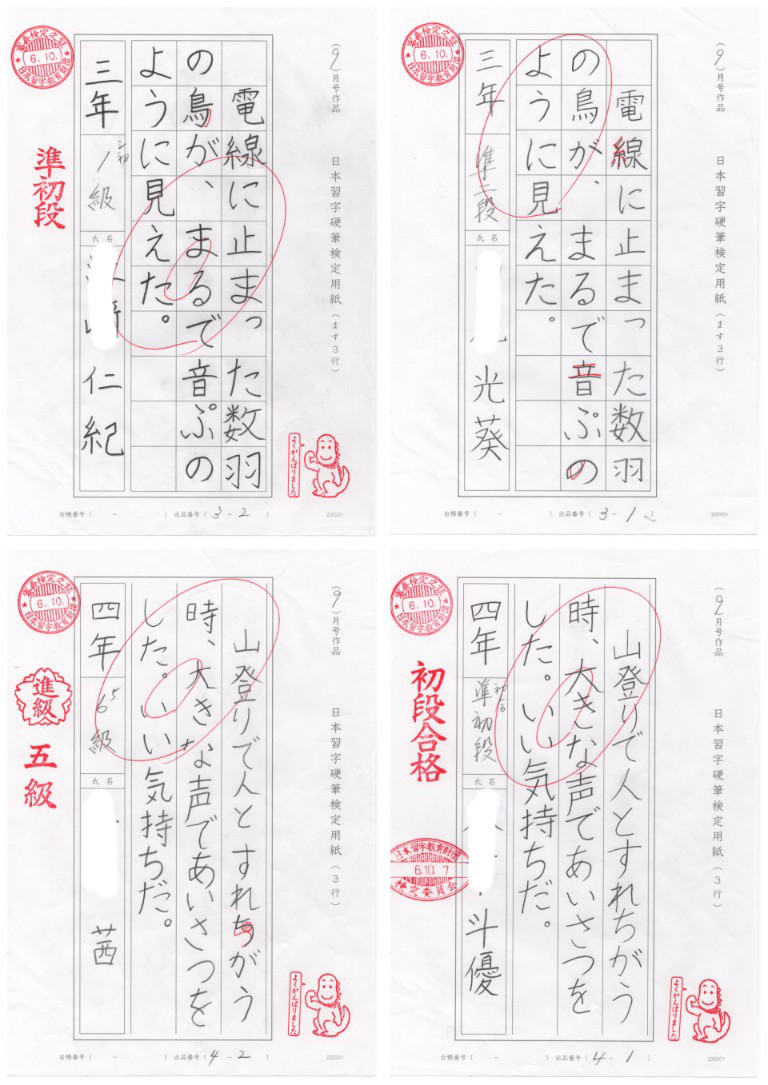 審査検定之証
6.10.
日本習字教育財団
準初段
(9)月号作品
日本習字硬筆検定用紙(ます3行)
電線に止まった数羽
の鳥が、まるで音ぷの
ように見えた。
三年
準初
1級
氏名
仁紀
よくがんばりました
台帳番号( - )
出品番号( 3-2 )
220201
審査検定之証
6.10.
日本習字教育財団
(9)月号作品
日本習字硬筆検定用紙(ます3行)
電線に止まった数羽
の鳥が、まるで音ぷの
ように見えた。
三年
準二段
氏名
光葵
台帳番号( - )
出品番号( 3-12 )
200901
審査検定之証
6.10.
日本習字教育財団
進級
五級
(9)月号作品
日本習字硬筆検定用紙(3行)
山登りで人とすれちがう
時、大きな声であいさつを
した。いい気持ちだ。
四年
5
6級
氏名
茜
よくがんばりました
台帳番号( - )
出品番号( 4-2 )
220201
審査検定之証
6.10.
日本習字教育財団
初段合格
日本習字教育財団
6.10.7
検定委員会
(9)月号作品
日本習字硬筆検定用紙(3行)
山登りで人とすれちがう
時、大きな声であいさつを
した。いい気持ちだ。
四年
準初段
氏名
斗優
よくがんばりました
台帳番号( - )
出品番号( 4-1 )
220201